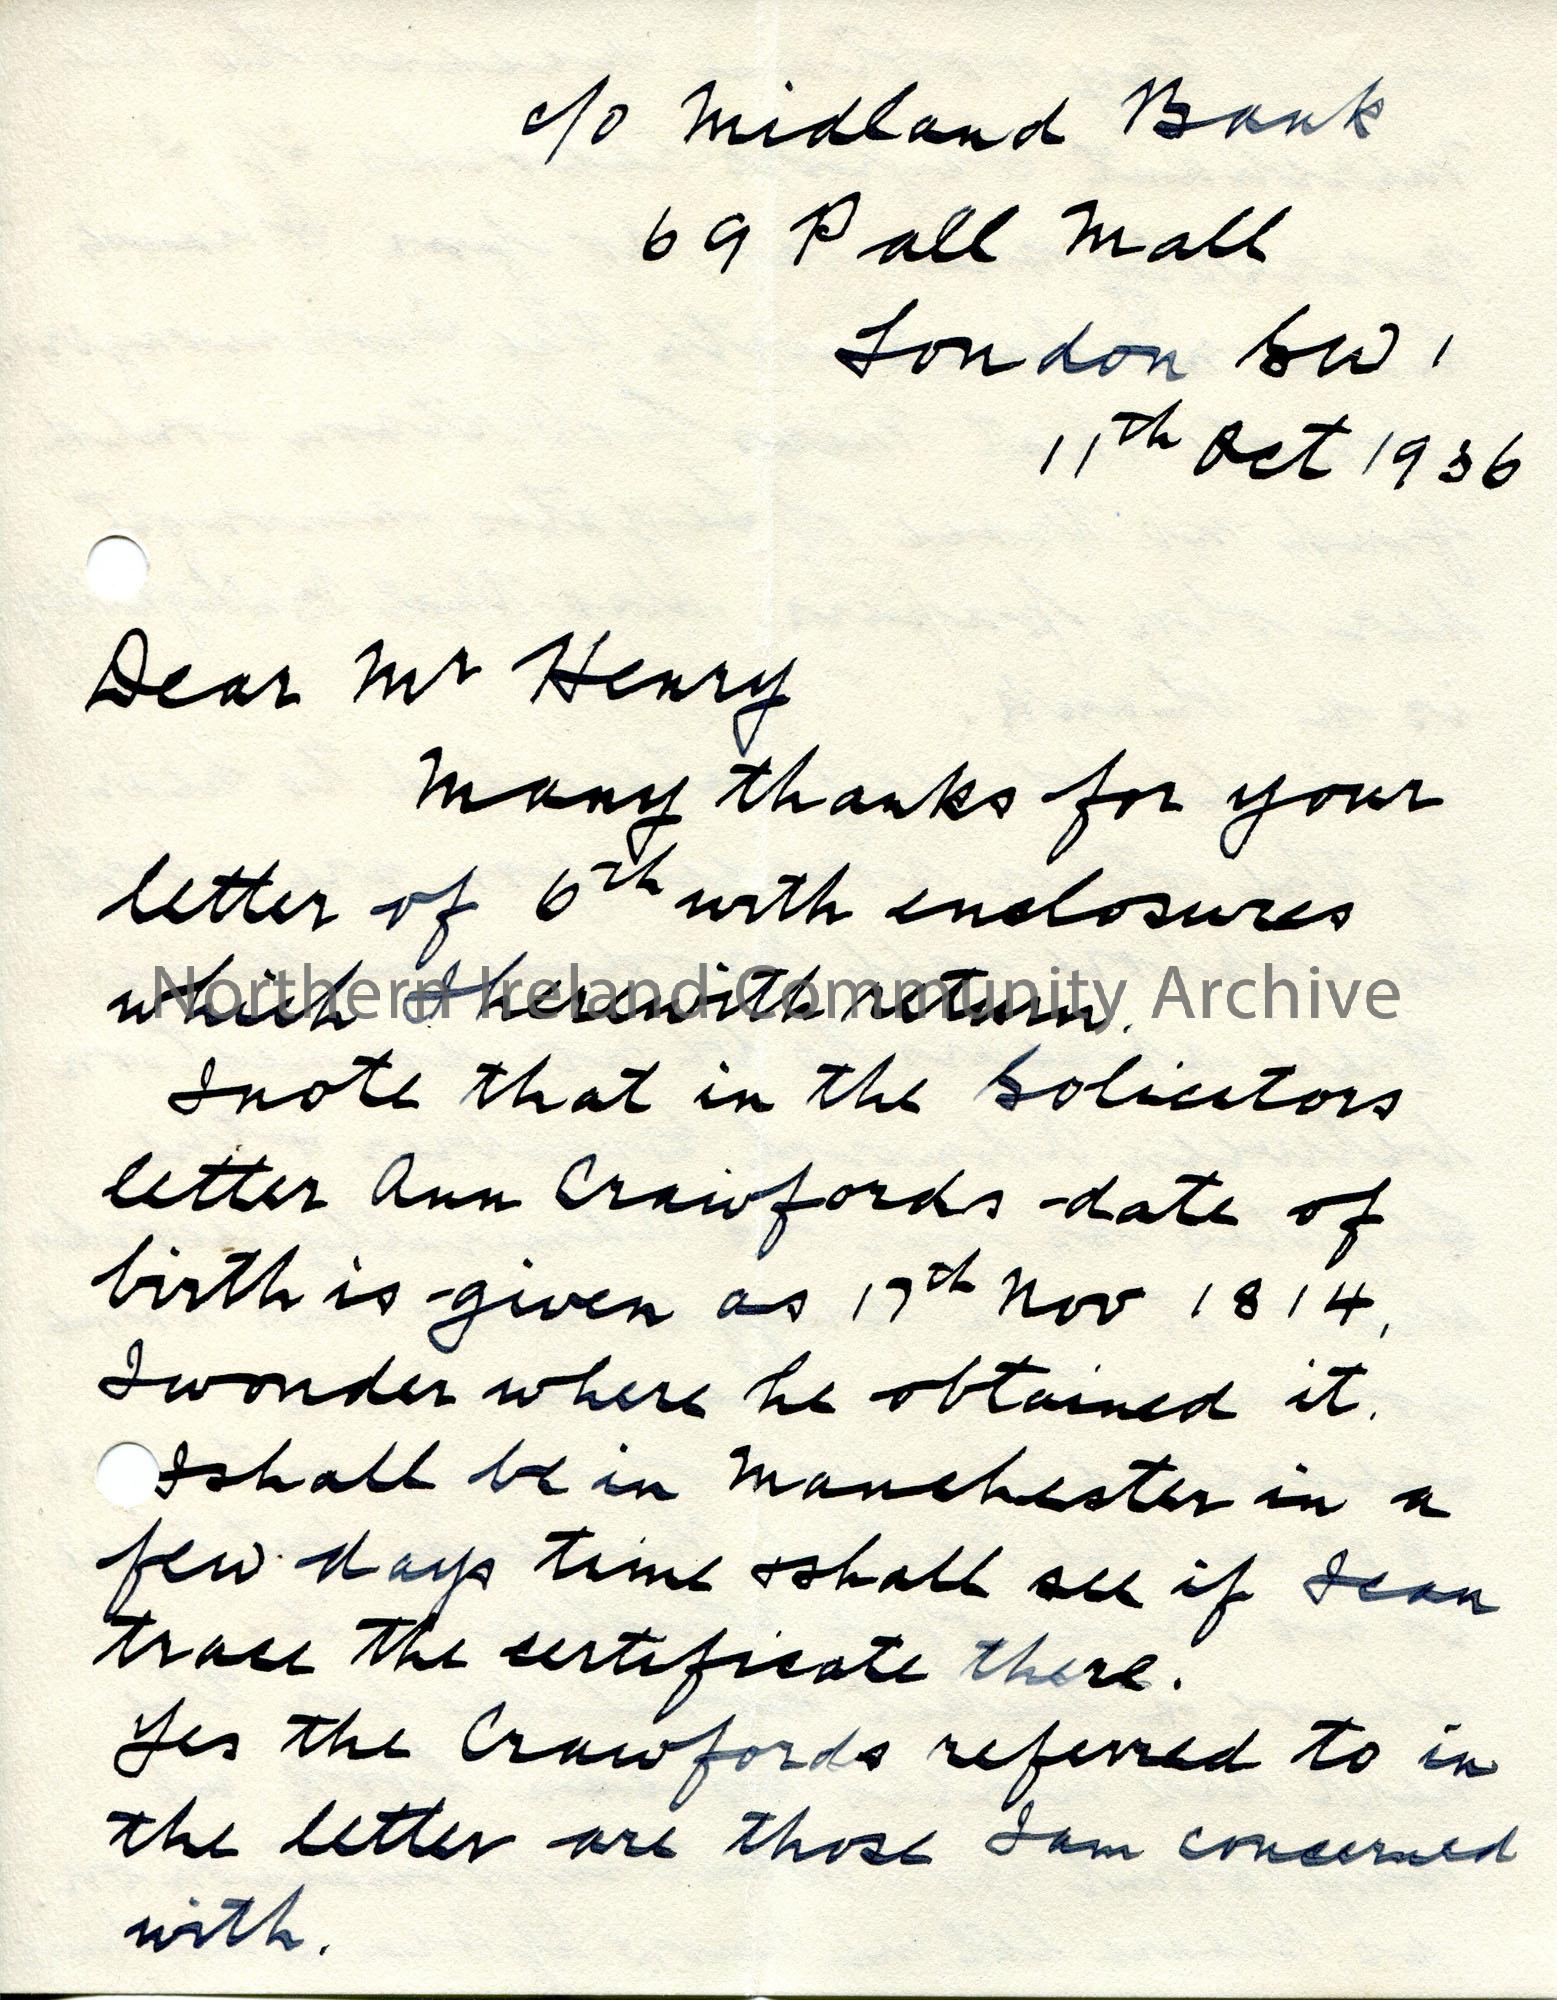 c/o Midland Bank
69 Pall Mall
London SW 1
11th Oct 1936
Dear Mr Henry
Many thanks for your
letter of 6th with enclosures
which I herewith return.
Northern Ireland Community Archive
I note that in the Solicitors
letter Ann Crawfords date of
birth is given as 17th Nov 1814,
I wonder where he obtained it.
I shall be in Manchester in a
few days time & shall see if I can
trace the certificate there.
Yes the Crawfords referred to in
the letter are those I am concerned
with.